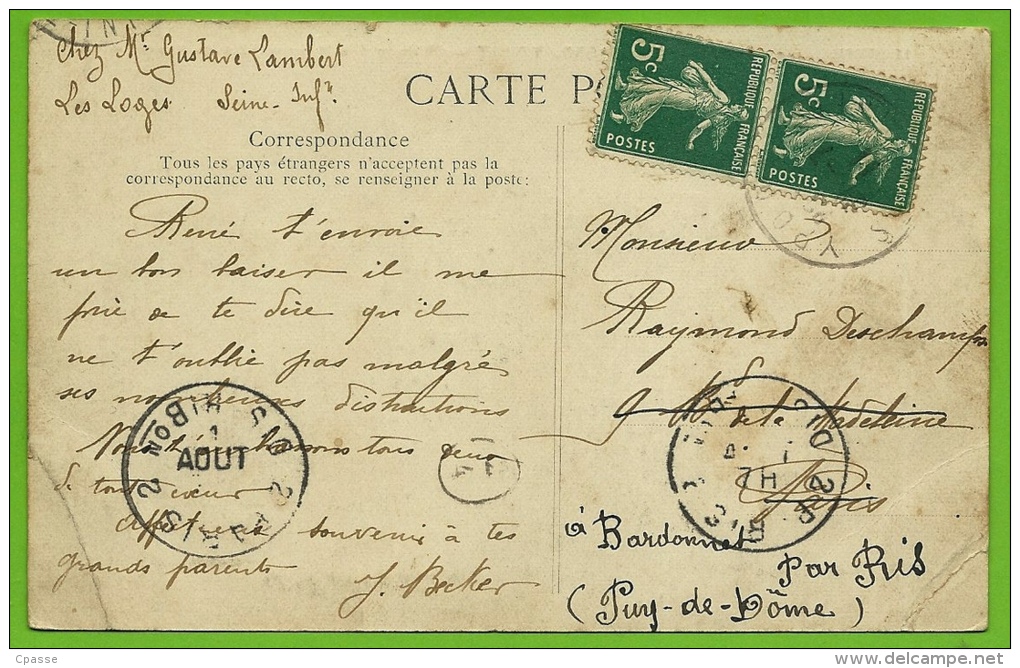 Chez Mr Gustave Lambert
Les Loges Seine-Infre
CARTE PO
Correspondance
Tous les pays étrangers n'acceptent pas la
correspondance au recto, se renseigner à la poste:
5c
REPUBLIQUE FRANÇAISE
POSTES
5c
REPUBLIQUE FRANÇAISE
POSTES
René t'envoie
un bon baiser il me
prie de te dire qu'il
ne t'oublie pas malgré
ses nombreuses distractions
tous deux
de tout cœur
souvenir à tes
grands parents
J. Becker
Monsieur
Raymond Deschamps
9 Bd de la Madeleine
Paris
à Bardonnet
par Ris
(Puy-de-Dôme)
1
AOUT
PARIS 2
7H
Cpasse
www.delcampe.net